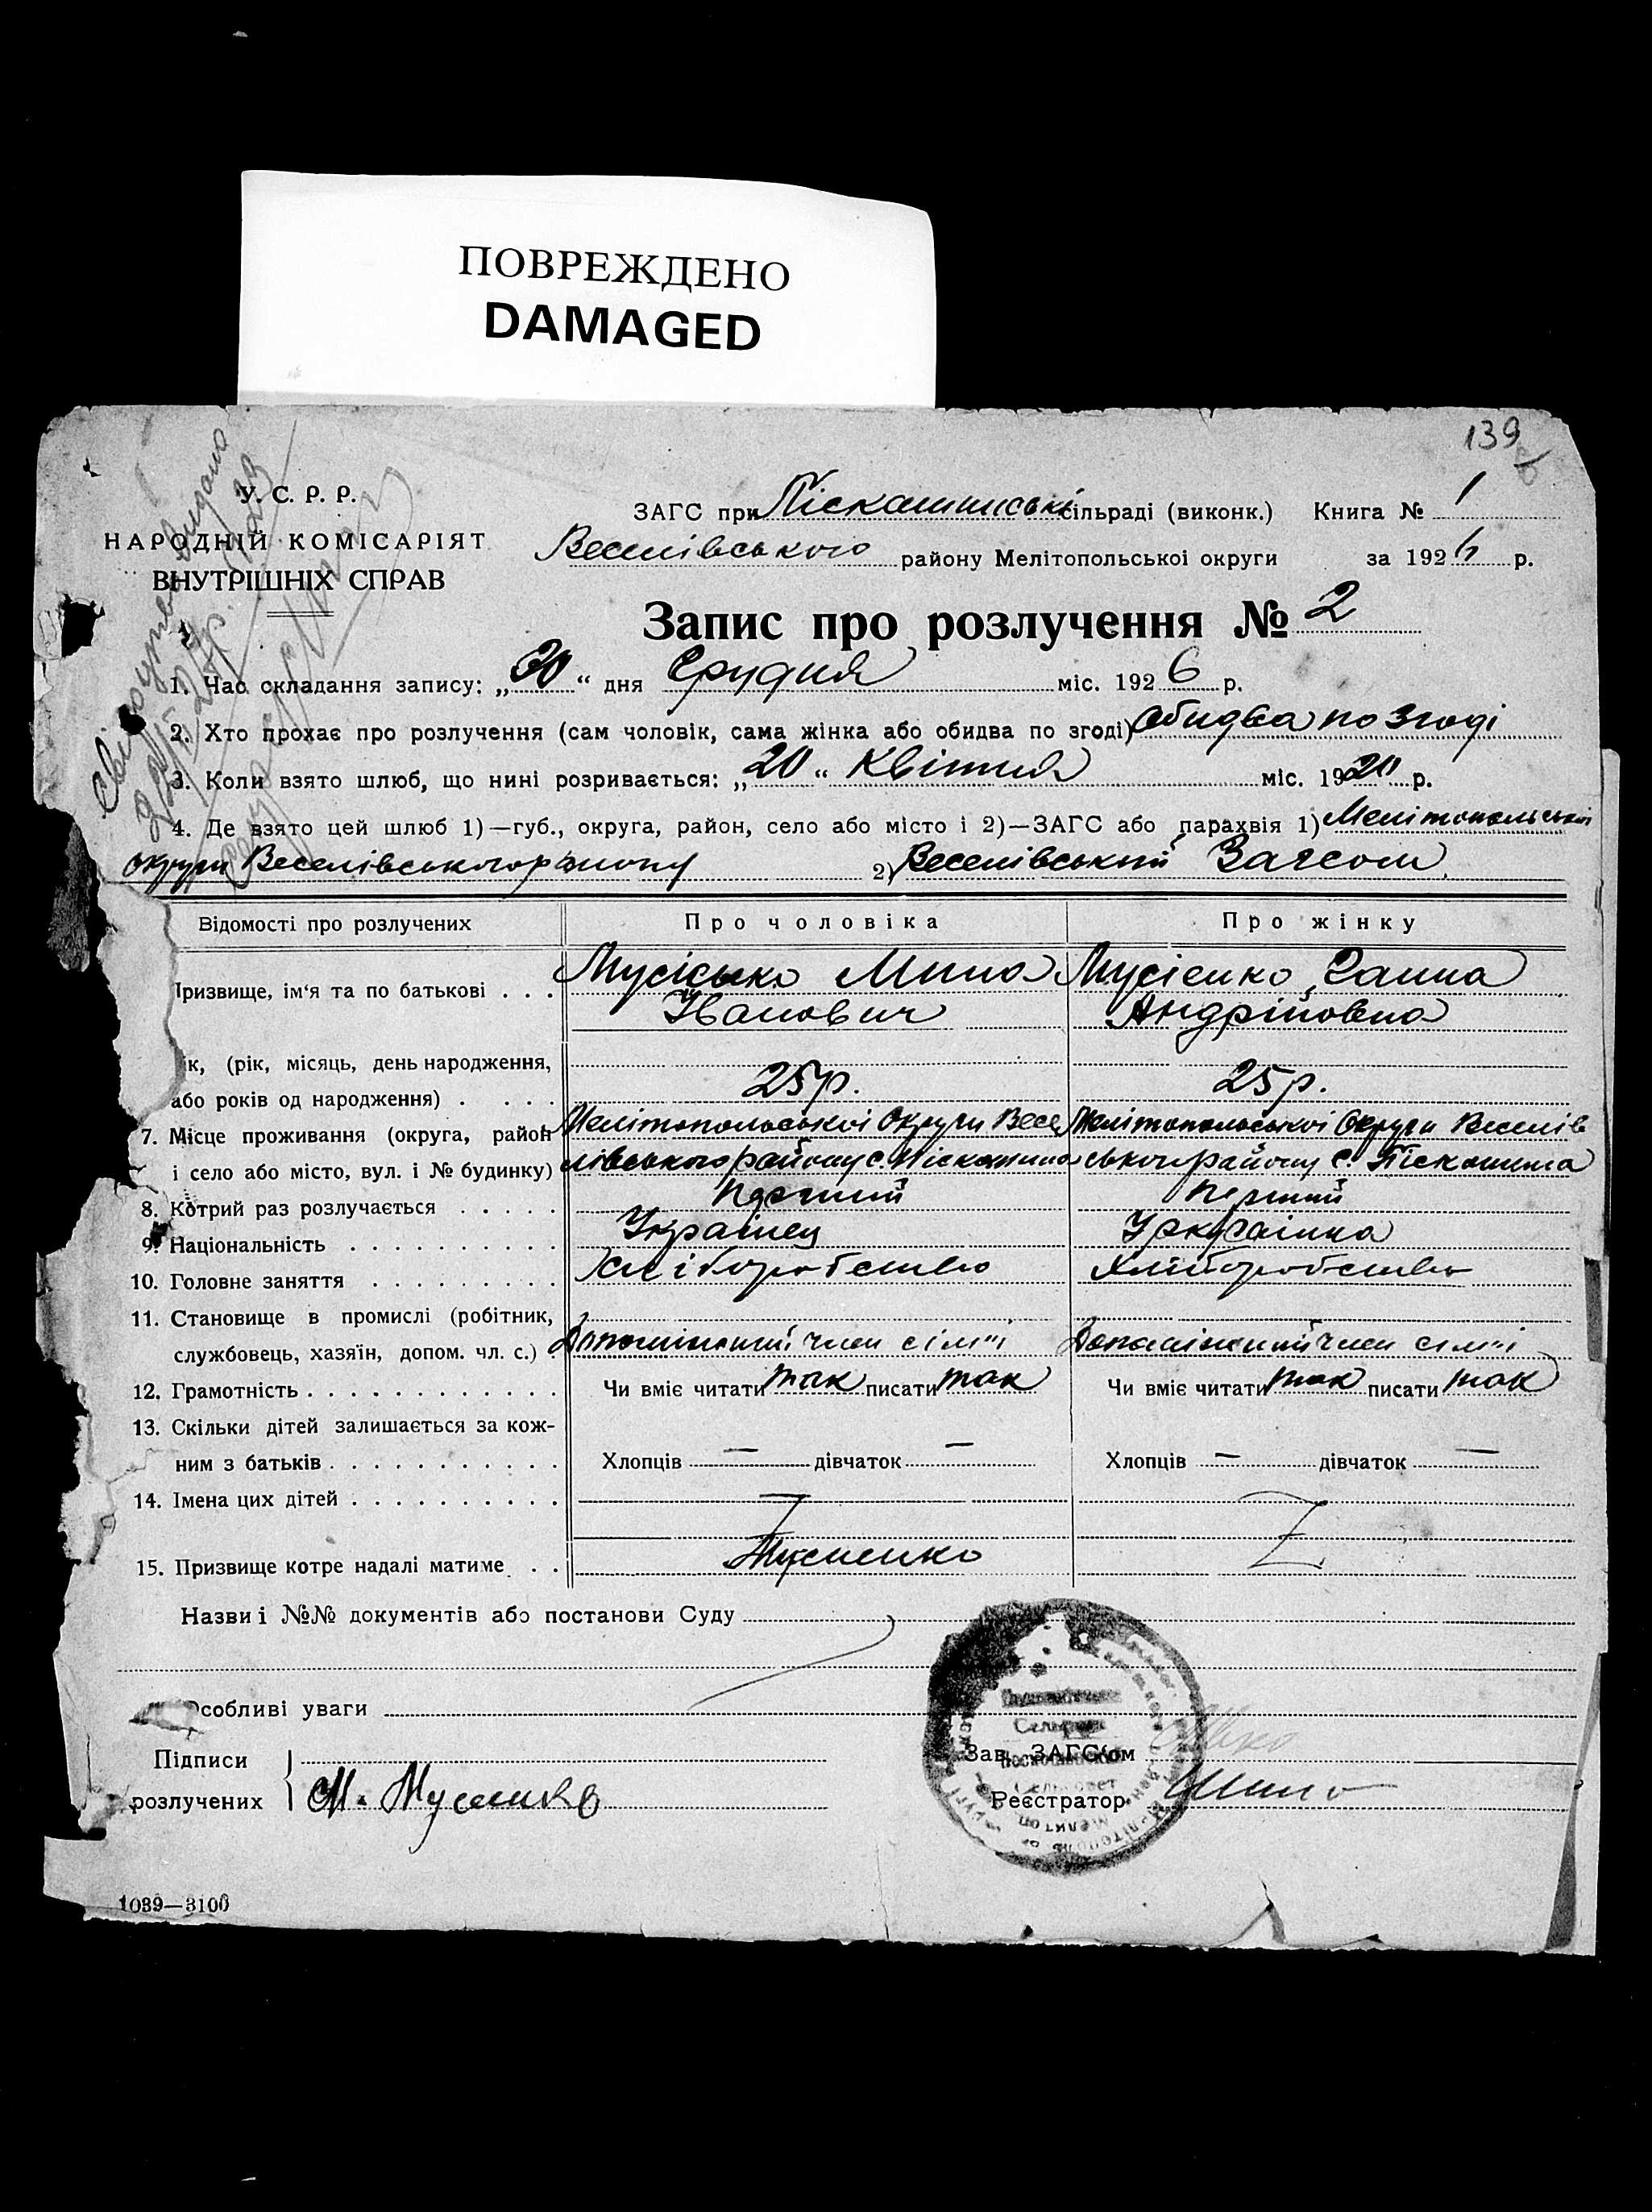 ПОВРЕЖДЕНО
DAMAGED
139
У. С. Р. Р.
НАРОДНІЙ КОМІСАРІЯТ
ВНУТРІШНІХ СПРАВ
ЗАГС при Піскашинські сільраді (виконк.) Книга № 1
Веселівського району Мелітопольської округи за 1926 р.
Запис про розлучення № 2
1. Час складання запису: „30“ дня Грудня міс. 1926 р.
2. Хто прохає про розлучення (сам чоловік, сама жінка або обидва по згоді) Обидва по згоді
3. Коли взято шлюб, що нині розривається: „20“ Квітня міс. 19 р.
4. Де взято цей шлюб 1)—губ., округа, район, село або місто і 2)—ЗАГС або парахвія 1) Мелітопольської
округи Веселівського району 2) Веселівський Загсом
Відомості про розлучених Про чоловіка Про жінку
Призвище, ім‘я та по батькові . . . Мусієько Мина Мусіенко Ганна
Иванович Андрійовна
ік, (рік, місяць, день народження,
або років од народження) . . . . 25 р. 25 р.
7. Місце проживання (округа, район Мелітопольської Округи Весе Мелітопольської Округи Веселів
і село або місто, вул. і № будинку) лівського району с. Піскашина ського району с. Піскошина
8. Котрий раз розлучається . . . . . Перший Перший
9. Національність . . . . . . . . . . Украінец Украінка
10. Головне заняття . . . . . . . . . Хліборобство Хліборобство
11. Становище в промислі (робітник,
службовець, хазяїн, допом. чл. с.) . Допомінкний член сімʼі Допомінкний член сімʼі
12. Грамотність . . . . . . . . . . . . Чи вміє читати так писати так Чи вміє читати так писати так
13. Скільки дітей залишається за кож-
ним з батьків . . . . . . . . . . . Хлопців — дівчаток — Хлопців — дівчаток —
14. Імена цих дітей . . . . . . . . . .
15. Призвище котре надалі матиме . . Мусиенко
Назви і №№ документів або постанови Суду
Особливі уваги
Підписи
розлучених М. Мусиенко
Зав. ЗАГС‘ом
Реєстратор
1039—3100